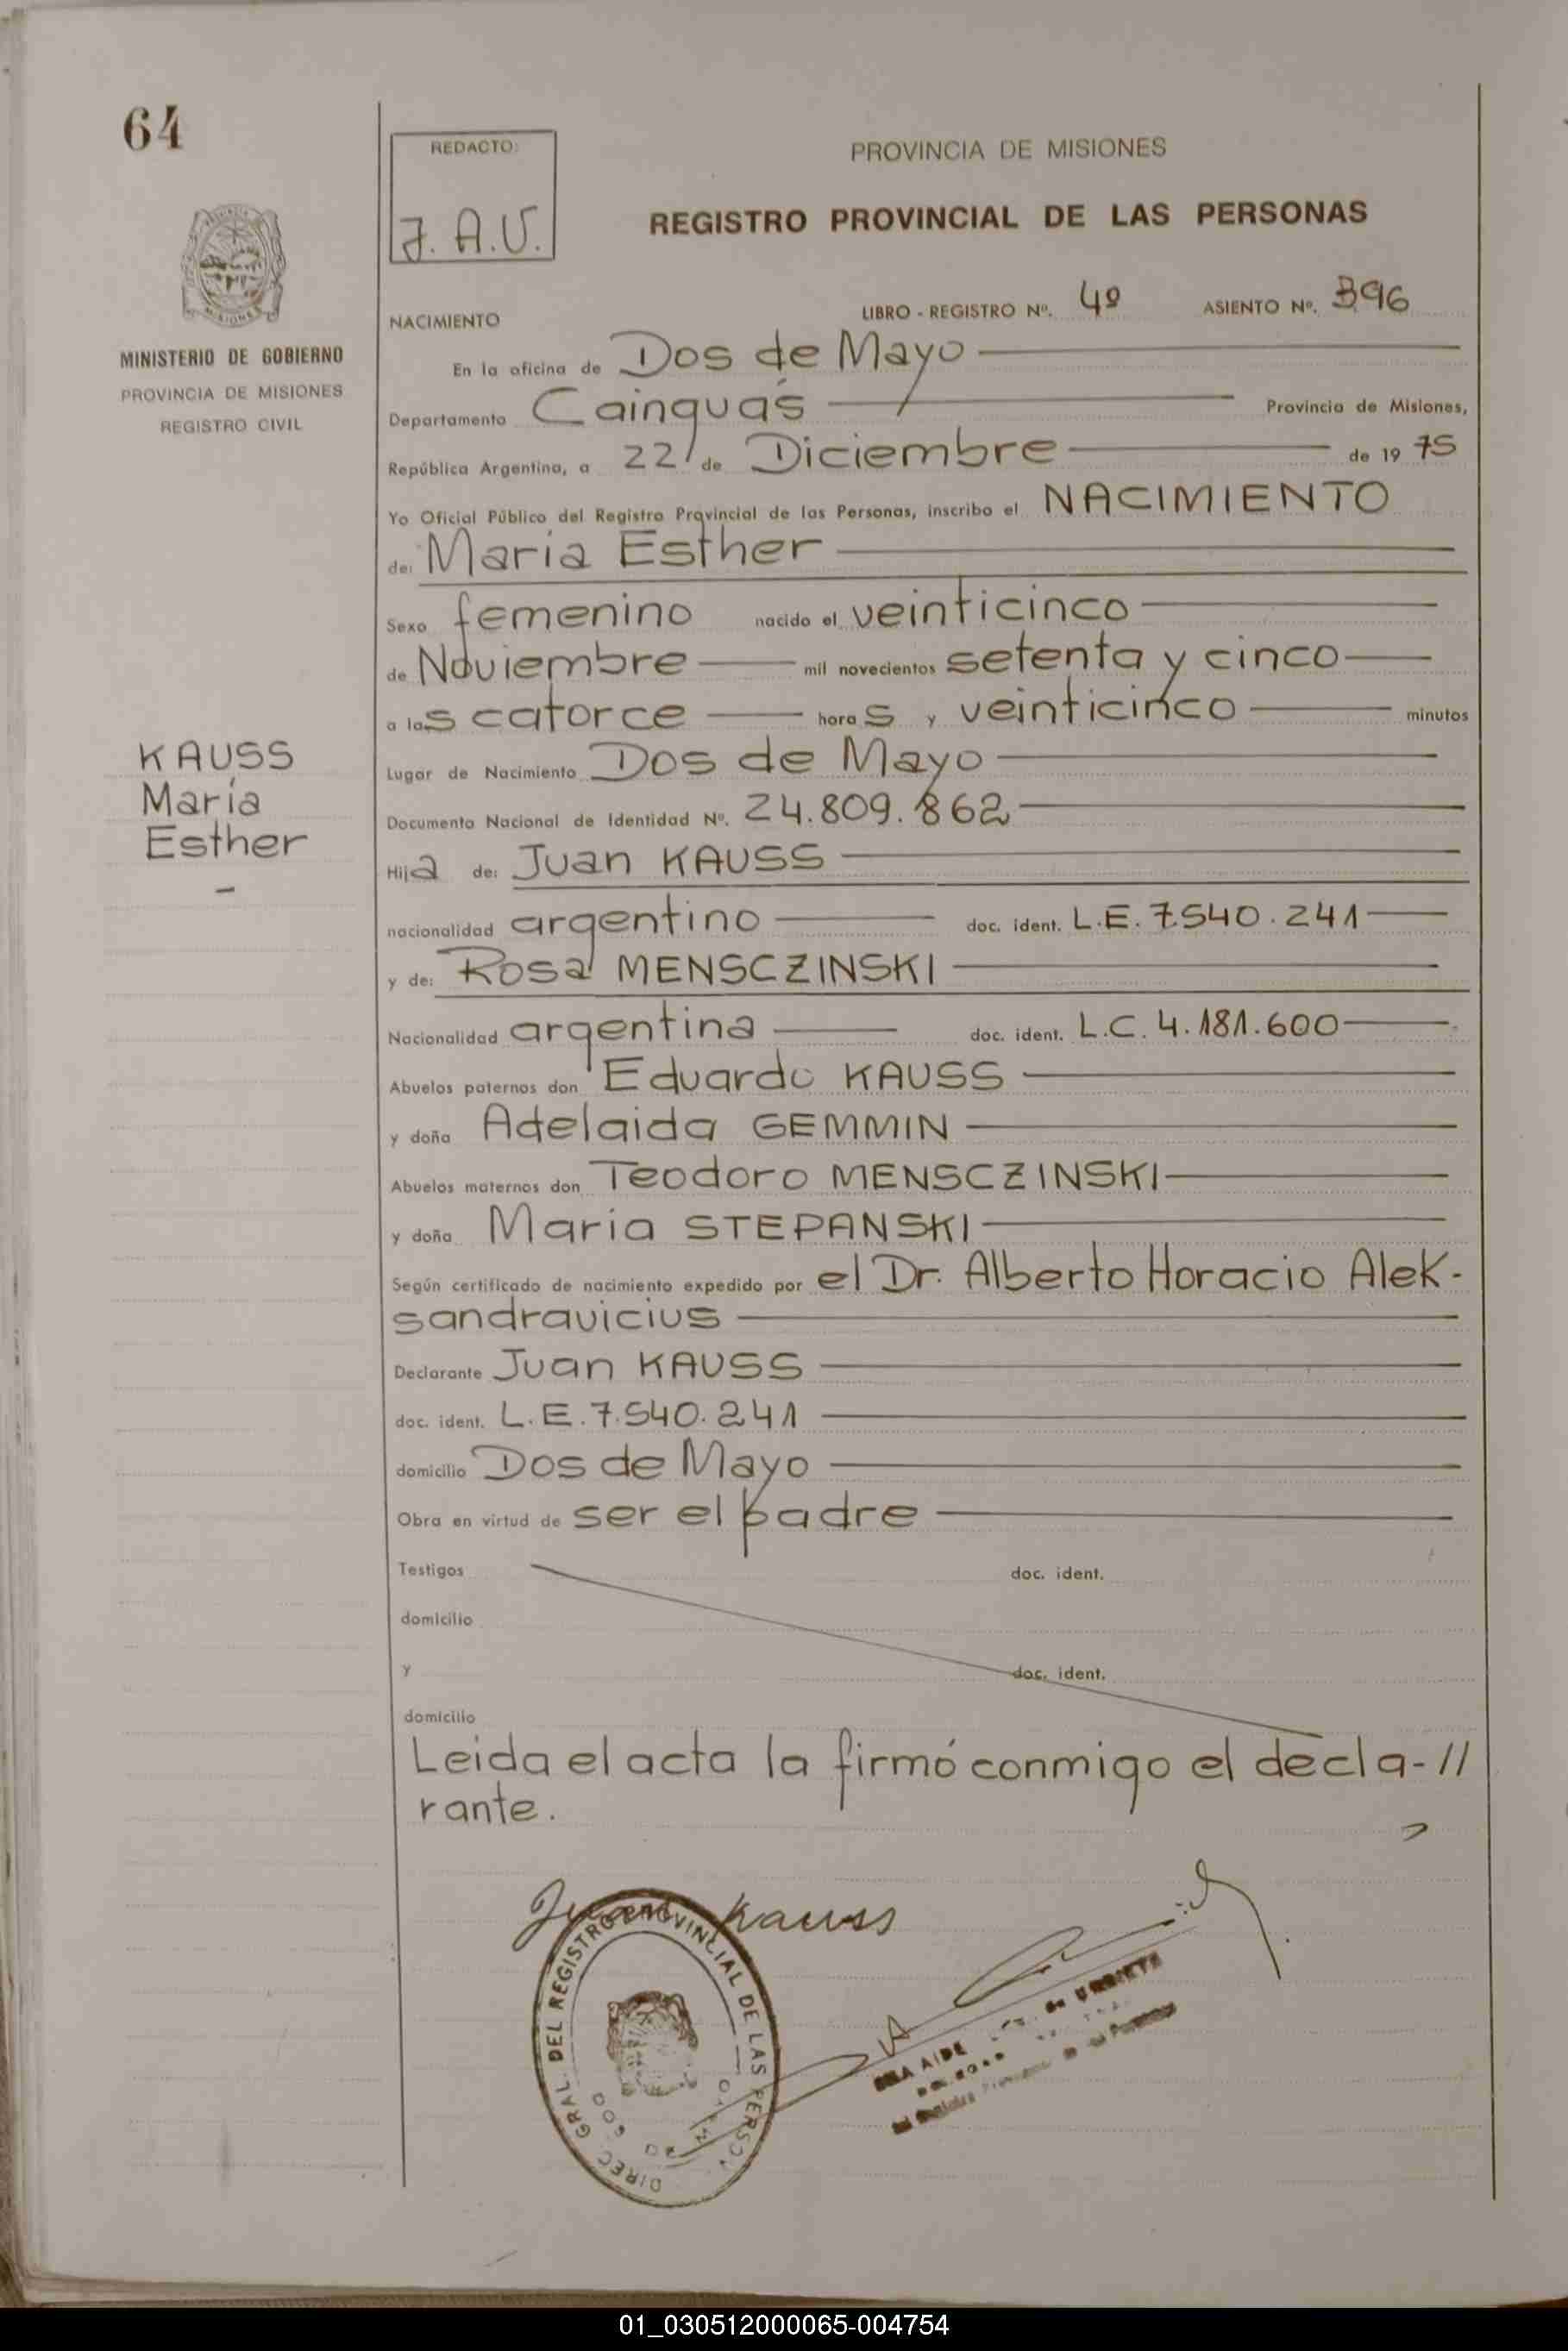 64
REDACTO:
J.A.V.
PROVINCIA DE MISIONES
REGISTRO PROVINCIAL DE LAS PERSONAS
MINISTERIO DE GOBIERNO
PROVINCIA DE MISIONES
REGISTRO CIVIL
NACIMIENTO LIBRO - REGISTRO Nº. 4º ASIENTO Nº. 396
En la oficina de Dos de Mayo
Departamento Cainguás Provincia de Misiones,
República Argentina, a 22 de Diciembre de 1975
Yo Oficial Público del Registro Provincial de las Personas, inscribo el NACIMIENTO
de: Maria Esther
Sexo femenino nacido el veinticinco
de Noviembre mil novecientos setenta y cinco
a las catorce horas y veinticinco minutos
KAUSS
María
Esther
Lugar de Nacimiento Dos de Mayo
Documento Nacional de Identidad Nº. 24.809.862
Hija de: Juan KAUSS
nacionalidad argentino doc. ident. L.E. 7.540.241
y de: Rosa MENSCZINSKI
Nacionalidad argentina doc. ident. L.C. 4.181.600
Abuelos paternos don Eduardo KAUSS
y doña Adelaida GEMMIN
Abuelos maternos don Teodoro MENSCZINSKI
y doña Maria STEPANSKI
Según certificado de nacimiento expedido por el Dr. Alberto Horacio Alek-
sandravicius
Declarante Juan KAUSS
doc. ident. L.E. 7.540.241
domicilio Dos de Mayo
Obra en virtud de ser el padre
Testigos doc. ident.
domicilio
y doc. ident.
domicilio
Leida el acta la firmó conmigo el decla-//
rante.
Juan Kauss
DIREC. GRAL. DEL REGISTRO PROVINCIAL DE LAS PERSON
DOS DE MAYO
AIDE de URRIETA
01_030512000065-004754